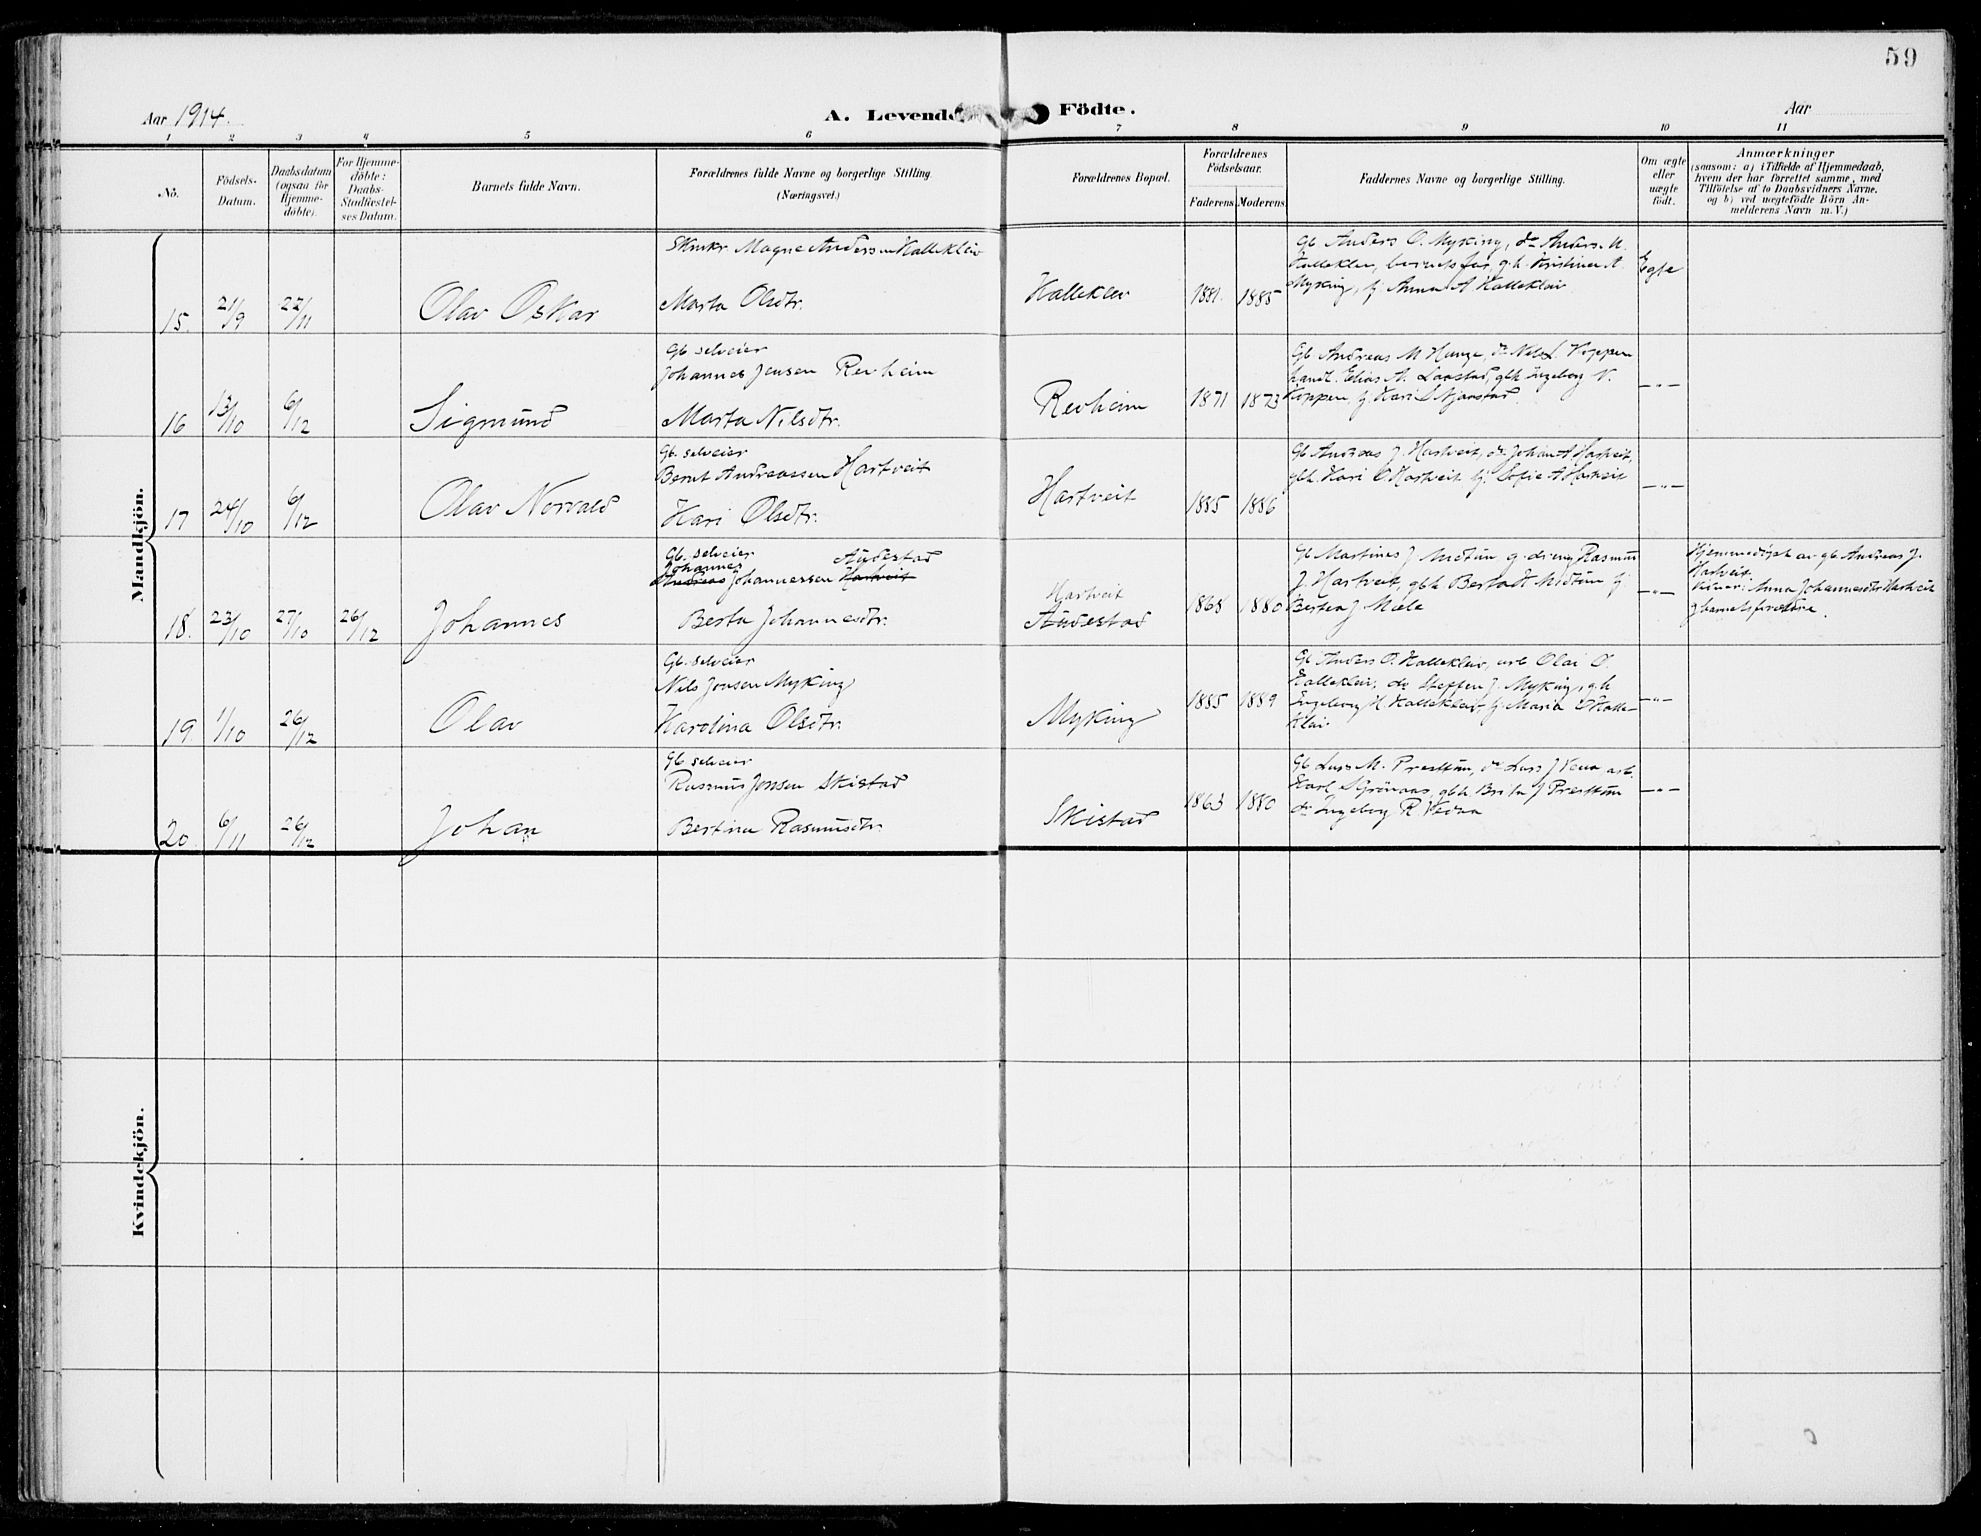 59
Aar 1914.
A. Levende Födte.
Aar
1 2 3 4 5 6 7 8 9 10 11
No.
Födsels-Datum.
Daabsdatum (ogsaa for Hjemme-döbte).
For Hjemme-döbte: Daabs-Stadfæstel-ses Datum.
Barnets fulde Navn.
Forældrenes fulde Navne og borgerlige Stilling. (Næringsvei.)
Forældrenes Bopæl.
Forældrenes Födselsaar.
Faderens Moderens
Faddernes Navne og borgerlige Stilling.
Om ægte eller uægte födt.
Anmærkninger
(saasom: a) i Tilfælde af Hjemmedaab,
hvem der har forrettet samme, med
Tilföielse af to Daabsvidners Navne.
og b) ved uægtefödte Börn An-
melderens Navn m. V.)
Mandkjön.
15. 21/9 22/11 Olav Oskar
Magne Anderssen Kalleklev
Marta Olsdtr.
Kalleklev 1881. 1885
Gb Anders O. Myking, do Anders M.
Kalleklev, barnets far, gb.k. Kristina A.
Myking, pj. Anna A Kallekleiv
Egte
16 13/10 6/12 Sigmund
Gb selveier
Johannes Jensen Revheim
Marta Nilsdtr.
Revheim 1871 1873
Gb. Andreas M Hauge, do Nils L. Koppen
handl. Elias A. gbk Ingeborg N.
Koppen, pj Kari
—"—
17 24/10 6/12 Olav Norvald
Gb. selveier
Bernt Andreassen Hartveit
Kari Olsdtr.
Hartveit 1885 1886
Gb Andreas J. Hartveit, do Johan A Hartveit,
gbk. Kari O Hartveit pj. Sofie A Hartveit
—"—
18. 23/10 27/10 26/12 Johannes
Gb. selveier Audestad
Johannes
Andreas Johannessen Hartveit
Berta Johannesdtr.
Hartveit
Audestad 1868 1880
Gb Martines J. Midtun g. dreng Rasmus
J. Hartveit, gbk Berta Midtun pj.
Berta J Mæle
—"—
Hjemmedøpt av gb. Andreas J.
Hartveit.
Vidner: Anna Johannesdtr Hartveit
g barnets forældre.
19. 1/10 26/12 Olav
Gb. selveier
Nils Jonsen Myking
Karolina Olsdtr.
Myking 1885 1889
Gb Anders O. Kalleklev, arb Olai O.
Kalleklev, do Steffen J. Myking, gbk
Ingeborg M. Kalleklev pj. Maria O Kalle-
klev
—"—
20. 6/11 26/12 Johan
Gb selveier
Rasmus Jonsen Skistad
Bertina Rasmusdtr.
Skistad 1863 1880
Gb Lars M. Presttun, do Lars J arb.
Karl gbk. Brita J Presttun
do Ingeborg R Vedaa
—"—
Kvindekjön.